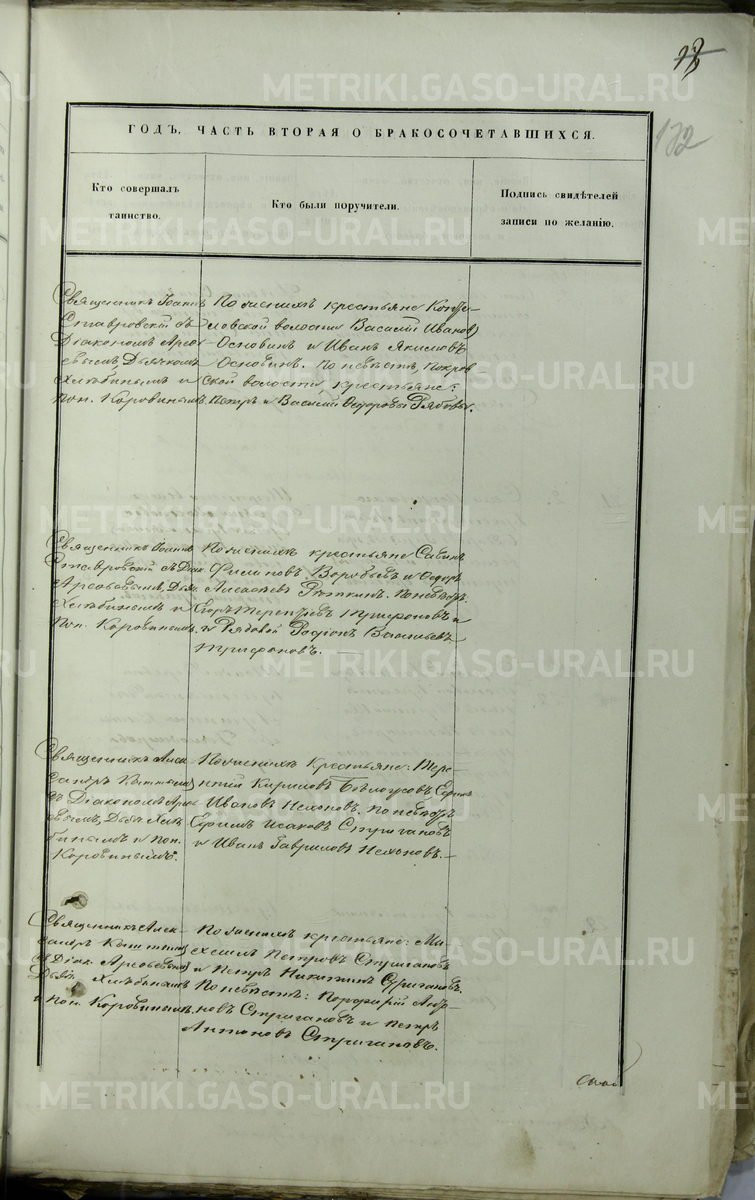 132
ГОДЪ, ЧАСТЬ ВТОРАЯ О БРАКОСОЧЕТАВШИХСЯ.
Кто совершалъ
таинство.
Кто были поручители.
Подпись свидѣтелей
записи по желанію.
Священникъ Іоаннъ
Ставровскій съ
Діакономъ Арсе-
евымъ, Дьячкомъ
Хлѣбинымъ и
Пон. Коровинымъ.
По женихѣ крестьяне
ловской волости Василій Ивановъ
Осковинъ и Иванъ Якимовъ
Осковинъ. По невѣстѣ, Покров-
ской волости крестьяне:
Петръ и Василій Ѳедоровы Рябовы.
Священникъ Іоаннъ
Ставровскій съ Діак.
Дьяч.
Хлѣбинымъ и
Пон. Коровинымъ.
По женихѣ крестьяне Савинъ
Филиповъ Воробьевъ и Ѳедоръ
Алексѣевъ Рѣпкинъ. По невѣстѣ:
Егоръ Терентьевъ Трифоновъ и
Рядовой Родіонъ Васильевъ
Трифоновъ.
Священникъ Алек-
сандръ
съ Діакономъ
Дьяч. Хлѣ-
бинымъ и Пон.
Коровинымъ.
По женихѣ Крестьяне: Тере-
нтій Кириловъ Бѣлоусовъ
Ивановъ Нехоновъ. По невѣстѣ
Ефимъ Исаковъ Стригановъ
и Иванъ Гавриловъ Нехоновъ.
Священникъ Алек-
сандръ
съ Діак.
Дьяч. Хлѣбинымъ
и Пон. Коровинымъ.
По женихѣ крестьяне: Ми-
хаилъ Петровъ Стригановъ
и Петръ Никитинъ Стригановъ.
По невѣстѣ: Порфирій
новъ Стригановъ и Петръ
Антоновъ Стригановъ.
METRIKI.GASO-URAL.RU